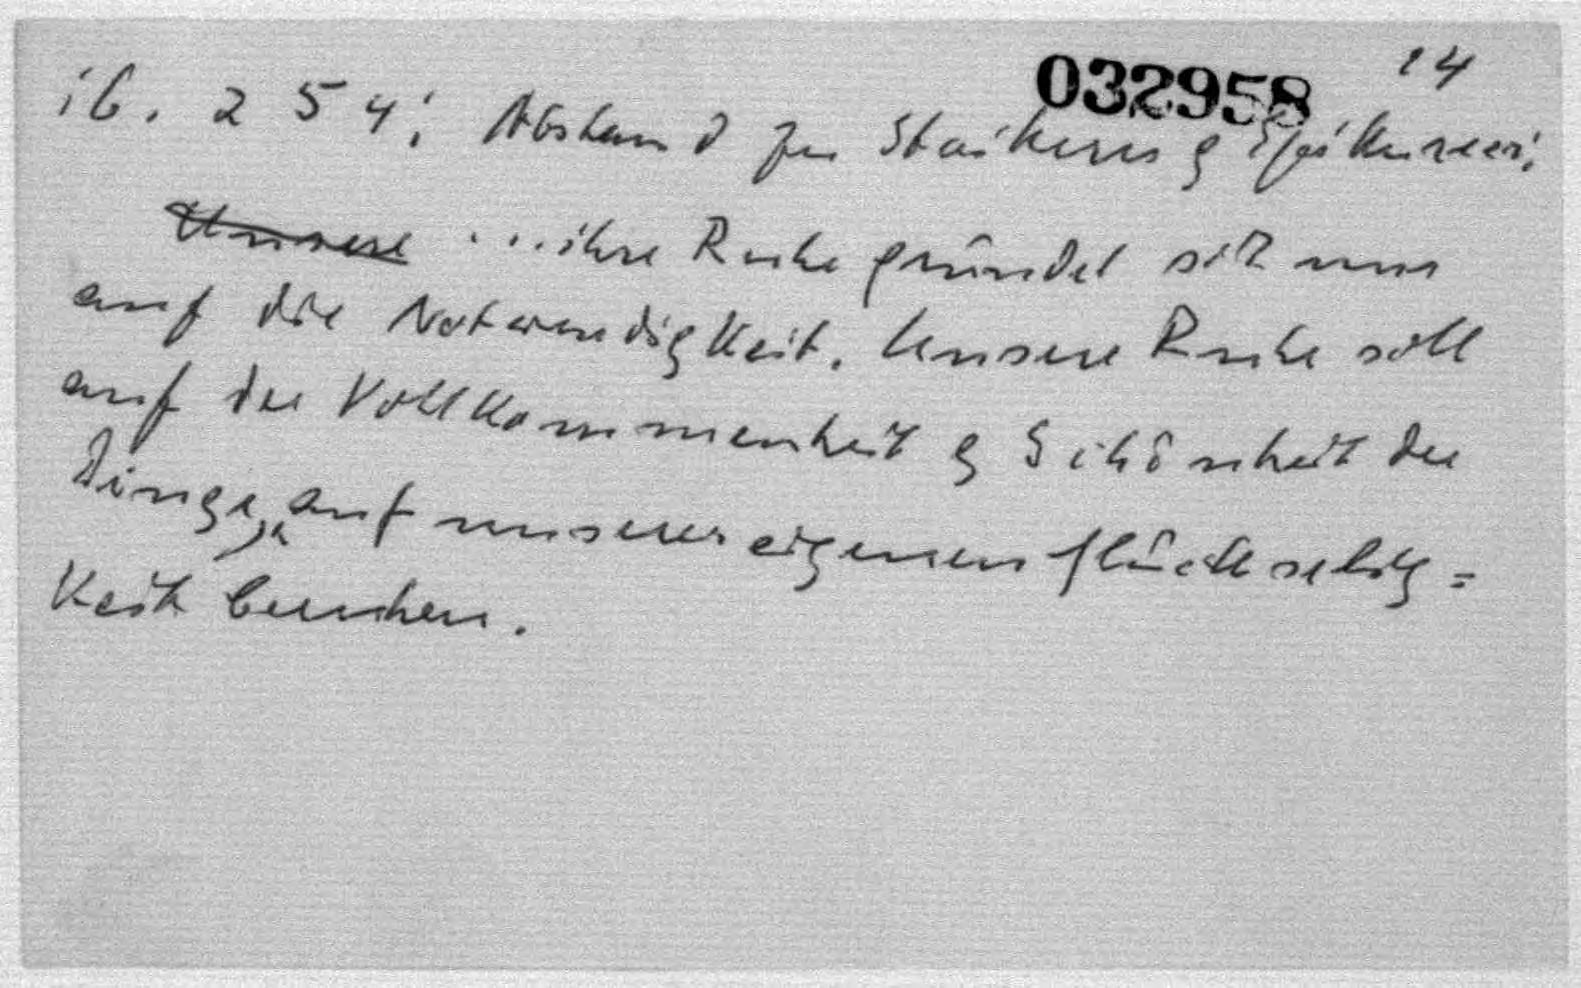 032958 14
ib. 254: Abstand zu Stoikern & Epikureern:
Unsere ...ihre Ruhe gründet sich nur
auf die Notwendigkeit. Unsere Ruhe soll
auf der Vollkommenheit & Schönheit der
Dinge, auf unserer eigenen Glückselig=
keit beruhen.